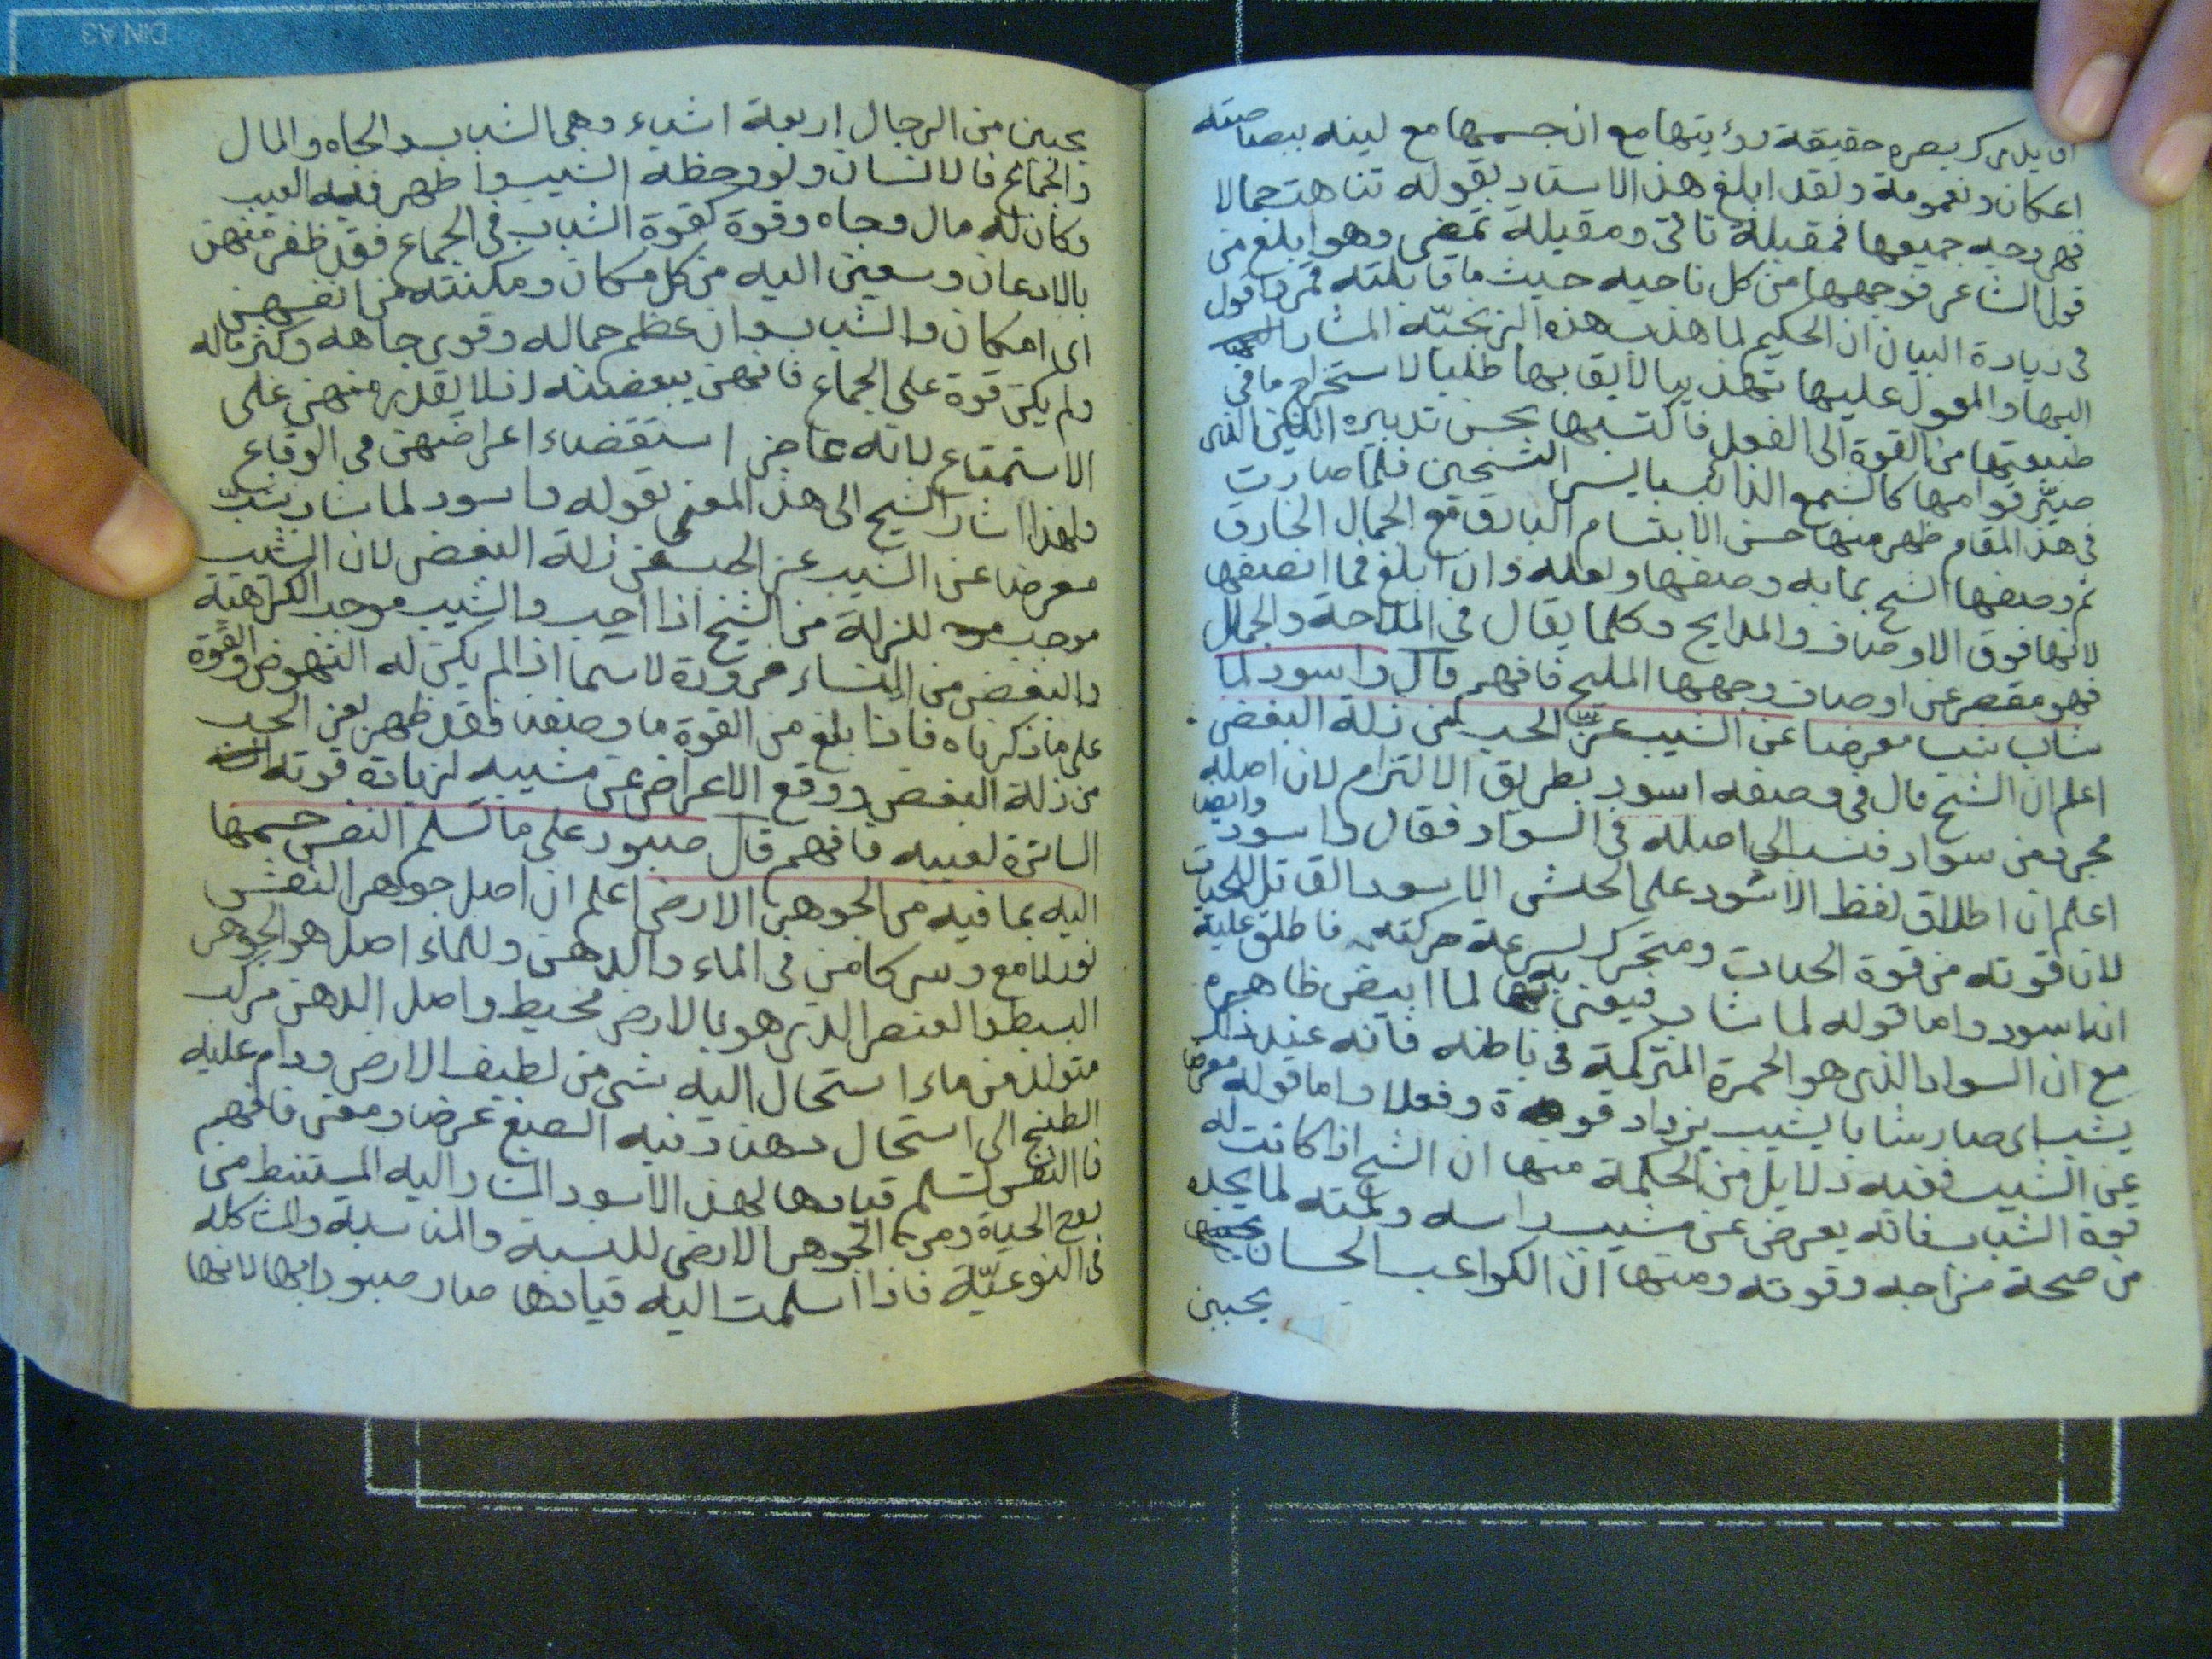 ان يدرك بصره حقيقة رؤيتها مع ان جسمها مع لينه ببصاصته
اعكان ونعومة ولقد ابلغ هذا الاستاد بقوله تناهت جمالا
فهى وجه جميعها فمقبلة تاتى ومقبلة تمضى وهو ابلغ من
قول الشاعر فوجهها من كل ناحيه حيث ما قابلته قمر واقول
فى زيادة البيان ان الحكيم لما هذب هذه الزنجيّه المشار
اليها والمعول عليها تهذيبا لايقا بها طلبا لاستخراج ما فى
طبيعتها من القوة الى الفعل فاكتسبها بحسن تدبيره الذى
صيّر قوامها كالشمع الذائب بايسر التسخين فلما صارت
فى هذا المقام ظهر منها حسن الابتسام البارق مع الجمال الخارق
ثم وصفها الشيخ بما به وصفها ولعله وان ابلغ فما انصفها
لانها فوق الاوصاف والمدايح وكلما يقال فى الملاحة والجمال
فهو مقصر عن اوصاف وجهها المليح فافهم قال واسود لما
شاب شب معرضا عن الشيب عزّ الحب من زلة البغض
اعلم ان الشيخ قال فى وصفه اسود بطريق الالتزام لان اصله
مجرد من سواد فنسب الى اصله فى السواد فقال واسود وايضا
اعلم ان اطلاق لفظ الاسود على الحنش الاسود القاتل للحيات
لان قوته من قوة الحيات ومتحرك لسرعة حركته فاطلق عليه
انه اسود واما قوله لما شاب فيعنى به لما ابيض ظاهره
مع ان السواد الذى هو الحمرة المتركمة فى باطنه فانه عند ذلك
يشب اى صار شابا يشيب يزداد قوة وفعلا واما قوله معرضا
عن الشيب ففيه دلايل من الحكمة منها ان الشيخ اذا كانت له
قوة الشباب فانه يعرض عن مشيب راسه ولمته لما يجده
من صحة مزاجه وقوته ومنها ان الكواعب الحسان
يحببن
يحببن من الرجال اربعة اشياء وهى الشباب والجاه والمال
والجماع فالانسان ولو وخطه الشيب واظهر فيه العيب
وكان له مال وجاه وقوة كقوة الشباب فى الجماع فقد ظفر منهن
بالاذعان وسعين اليه من كل مكان ومكنته من انفسهن
اى امكان والشاب وان عظم جماله وقوى جاهه وكثر ماله
ولم يكن قوة على الجماع فانهن يبغضنه اذ لا يقدر منهن على
الاستمتاع لانه عاجز استقضاء اعراضهن فى الوقاع
ولهذا اشار الشيخ الى هذا المعنى بقوله واسود لما شاب شبّ
معرضا عن الشيب عز الحب من زلة البغض لان الشيب
موجب للزلة من الشيخ اذا احب والشيب موجب الكراهية
والبغض من النساء ضرورة لاسما اذا لم يكن له النهوض والقوة
على ما ذكرناه فاذا بلغ من القوة ما وصفنا فقد ظهر بعز الحب
من زلة البغض ووقع الاعراض عن مشيبه لزيادة قوته
الساترة لعيبه فافهم قال صبور على ما تسلم النفس جسمها
اليه بما فيه من الجوهر الارضى اعلم ان اصل جوهر النفس
نور لامع وسر كامن فى الماء والدهن وللماء اصل هو الجوهر
البسط والعنصر الذى هو بالارض محيط واصل الدهن مركب
متولد من ماء استحال اليه شى من لطيف الارض ودام عليه
الطبخ الى ان استحال دهنا وفيه الصبغ عرضا ومعنى فافهم
فا النفس تسلم قيادها لهذا الاسود المشار اليه المستنبط من
روح الحياة ومن الجوهر الارضى للنسبة والمناسبة والمشاكلة
فى النوعيّة فاذا اسلمت اليه قيادها صار صبورا بها لانها